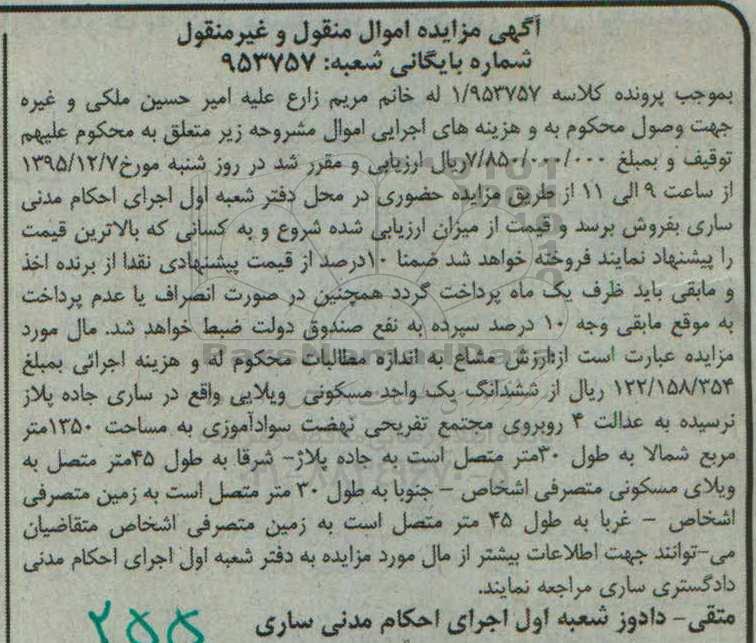 آگهی مزایده اموال منقول و غیرمنقول
شماره بایگانی شعبه: ۹۵۳۷۵۷
بموجب پرونده کلاسه ۱/۹۵۳۷۵۷ له خانم مریم زارع علیه امیر حسین ملکی و غیره
جهت وصول محکوم به و هزینه های اجرایی اموال مشروحه زیر متعلق به محکوم علیهم
توقیف و بمبلغ ۷/۸۵۰/۰۰۰/۰۰۰ریال ارزیابی و مقرر شد در روز شنبه مورخ۱۳۹۵/۱۲/۷
از ساعت ۹ الی ۱۱ از طریق مزایده حضوری در محل دفتر شعبه اول اجرای احکام مدنی
ساری بفروش برسد و قیمت از میزان ارزیابی شده شروع و به کسانی که بالاترین قیمت
را پیشنهاد نمایند فروخته خواهد شد ضمنا ۱۰درصد از قیمت پیشنهادی نقدا از برنده اخذ
و مابقی باید ظرف یک ماه پرداخت گردد همچنین در صورت انصراف یا عدم پرداخت
به موقع مابقی وجه ۱۰ درصد سپرده به نفع صندوق دولت ضبط خواهد شد. مال مورد
مزایده عبارت است از:ارزش مشاع به اندازه مطالبات محکوم له و هزینه اجرائی بمبلغ
۱۲۲/۱۵۸/۳۵۴ ریال از ششدانگ یک واحد مسکونی ویلایی واقع در ساری جاده پلاژ
نرسیده به عدالت ۴ روبروی مجتمع تفریحی نهضت سوادآموزی به مساحت ۱۳۵۰متر
مربع شمالا به طول ۳۰متر متصل است به جاده پلاژ- شرقا به طول ۴۵متر متصل به
ویلای مسکونی متصرفی اشخاص - جنوبا به طول ۳۰ متر متصل است به زمین متصرفی
اشخاص - غربا به طول ۴۵ متر متصل است به زمین متصرفی اشخاص متقاضیان
می-توانند جهت اطلاعات بیشتر از مال مورد مزایده به دفتر شعبه اول اجرای احکام مدنی
دادگستری ساری مراجعه نمایند.
متقی- دادورز شعبه اول اجرای احکام مدنی ساری
۲۵۵